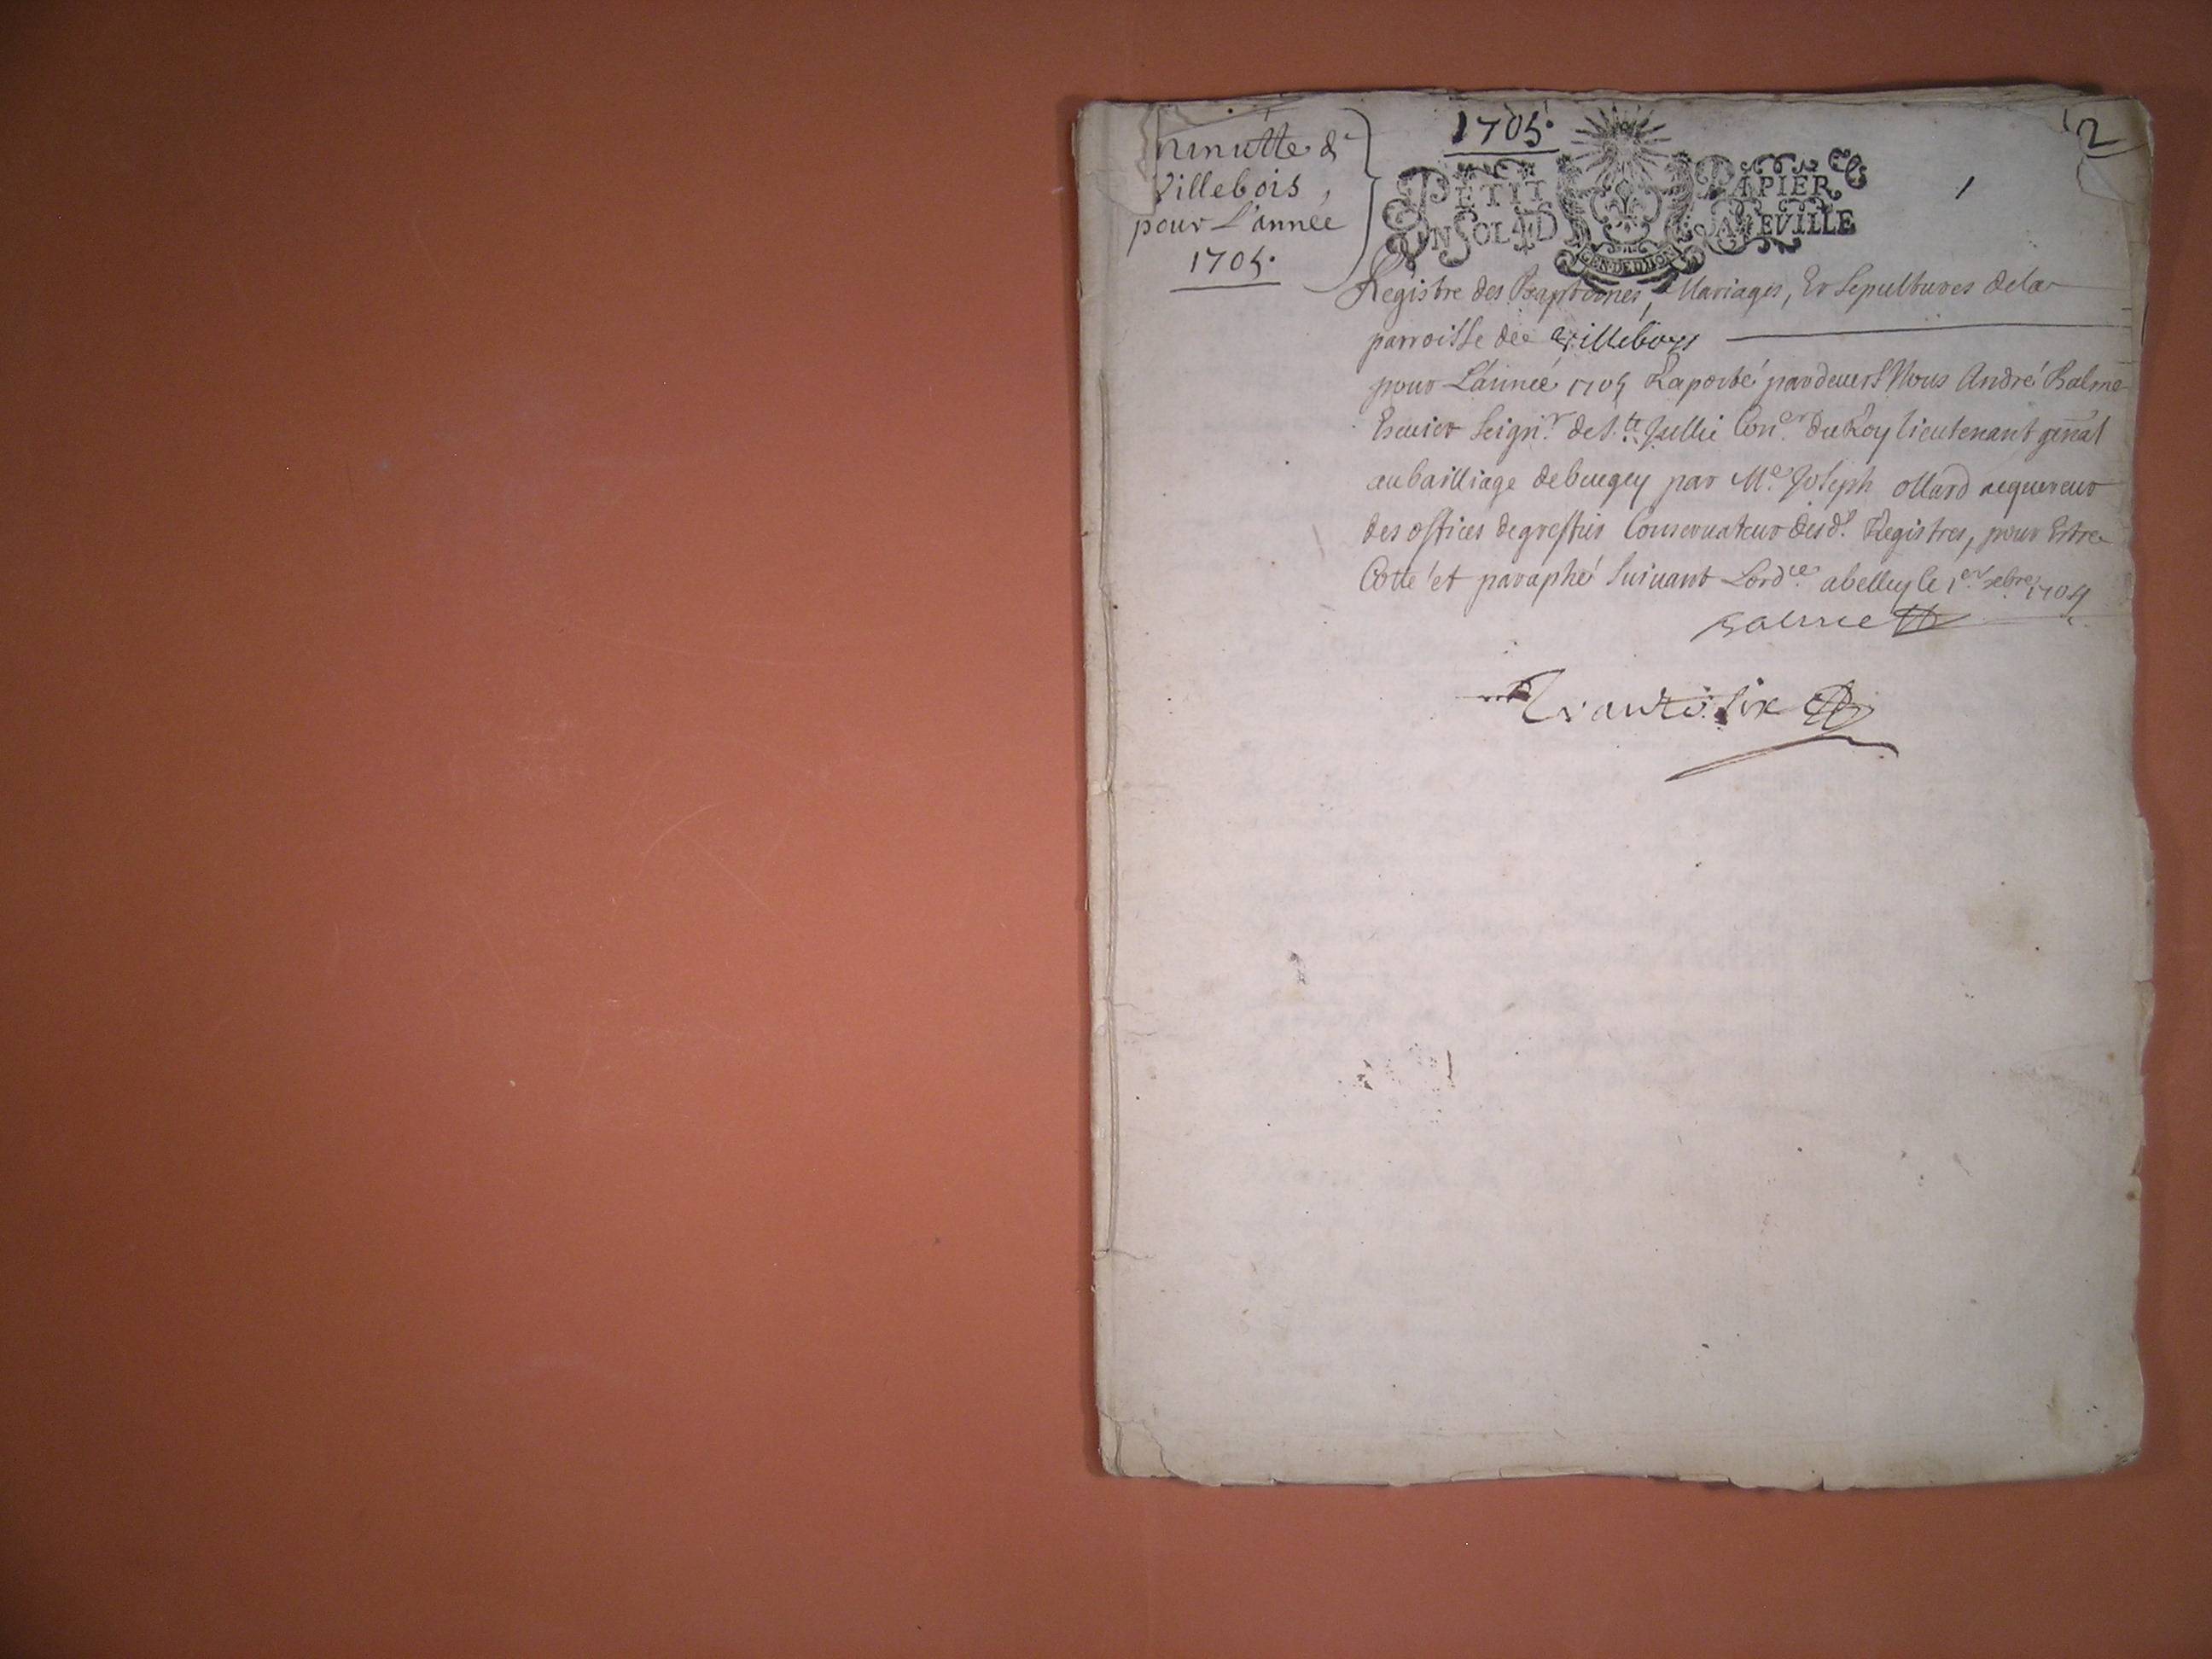 minutte de
Villebois,
pour L'année
1705.
1705.
2
1
PETIT PAPIER
UN SOL 4 D LA FEVILLE
GEN DE DIION
Registre des Baptemes, Mariages, Et Sepultures dela
parroisse de villeboys
pour L'année 1705 Raporté pardeuers Nous André Balme
Escuier Seign.r de S.te Jullie Con.er du Roy lieutenant gñal
au bailliage de bugey par M.e Joseph ollard acquereur
des offices de greffier Conseruateur desd.s Registres, pour Estre
Cotté et paraphé Suiuant Lord.ce a belley le 1.er xbre 1704
Balme